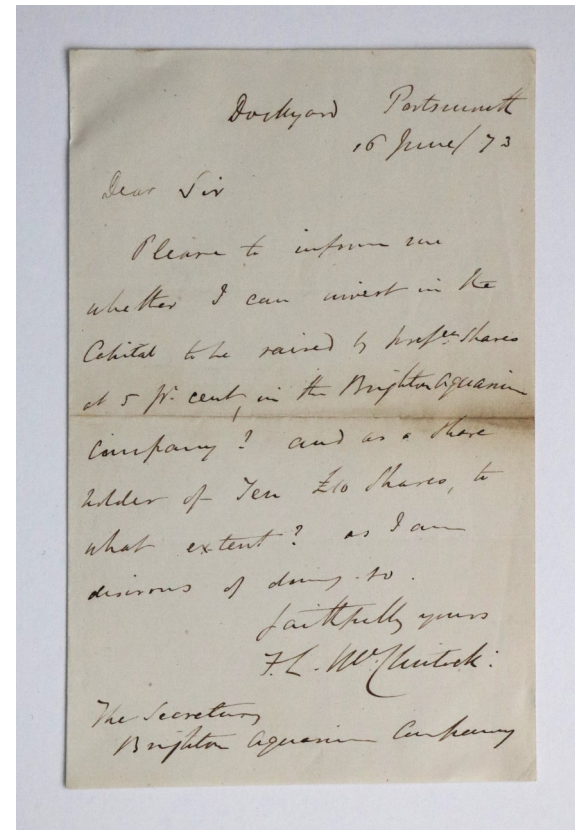 Dockyard Portsmouth
16 June/73
Dear Sir
Please to inform me
whether I can invest in the
Capital to be raised by prefce Shares
at 5 pr. cent, in the Brighton Aquarium
Company? and as a Share
holder of Ten £10 Shares, to
what extent? as I am
desirous of doing so.
faithfully yours
F. L. McClintock.
The Secretary
Brighton Aquarium Company